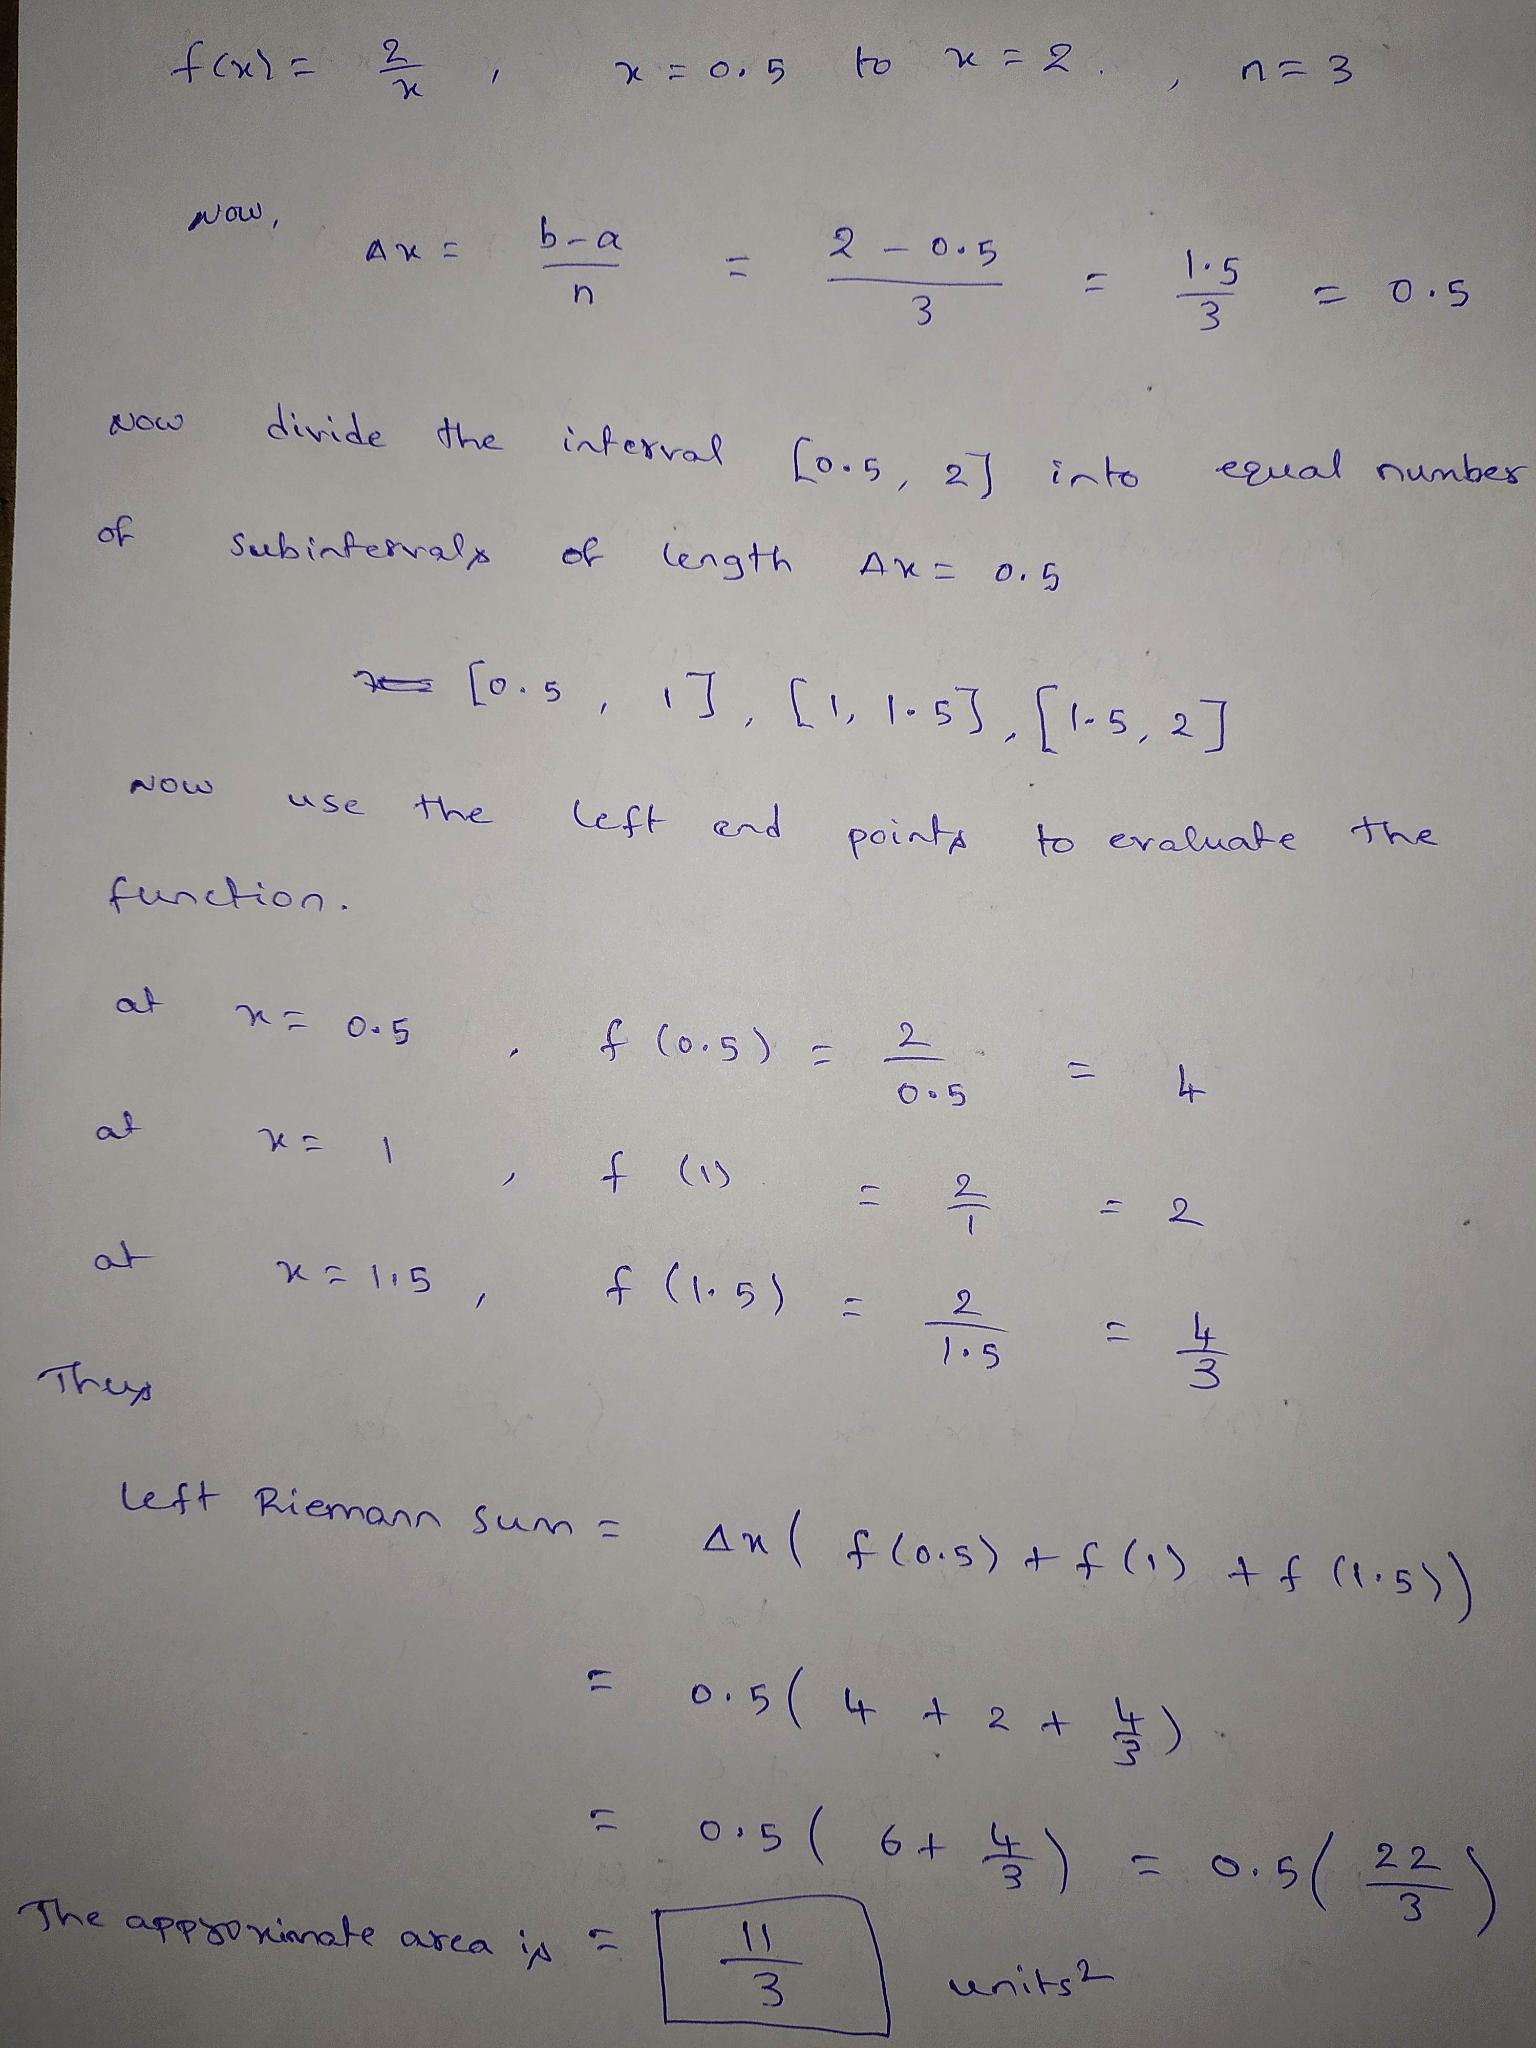 f(x) = 2/x , x = 0.5 to x = 2. , n = 3
Now, Δx = b-a/n = 2 - 0.5/3 = 1.5/3 = 0.5
Now divide the interval [0.5, 2] into equal number
of subintervals of length Δx = 0.5
[0.5, 1], [1, 1.5], [1.5, 2]
Now use the left end points to evaluate the
function.
at x = 0.5 , f(0.5) = 2/0.5 = 4
at x = 1 , f(1) = 2/1 = 2
at x = 1.5 , f(1.5) = 2/1.5 = 4/3
Thus
Left Riemann sum = Δx( f(0.5) + f(1) + f(1.5))
= 0.5( 4 + 2 + 4/3)
= 0.5( 6 + 4/3) = 0.5( 22/3)
The approximate area is = 11/3 units²